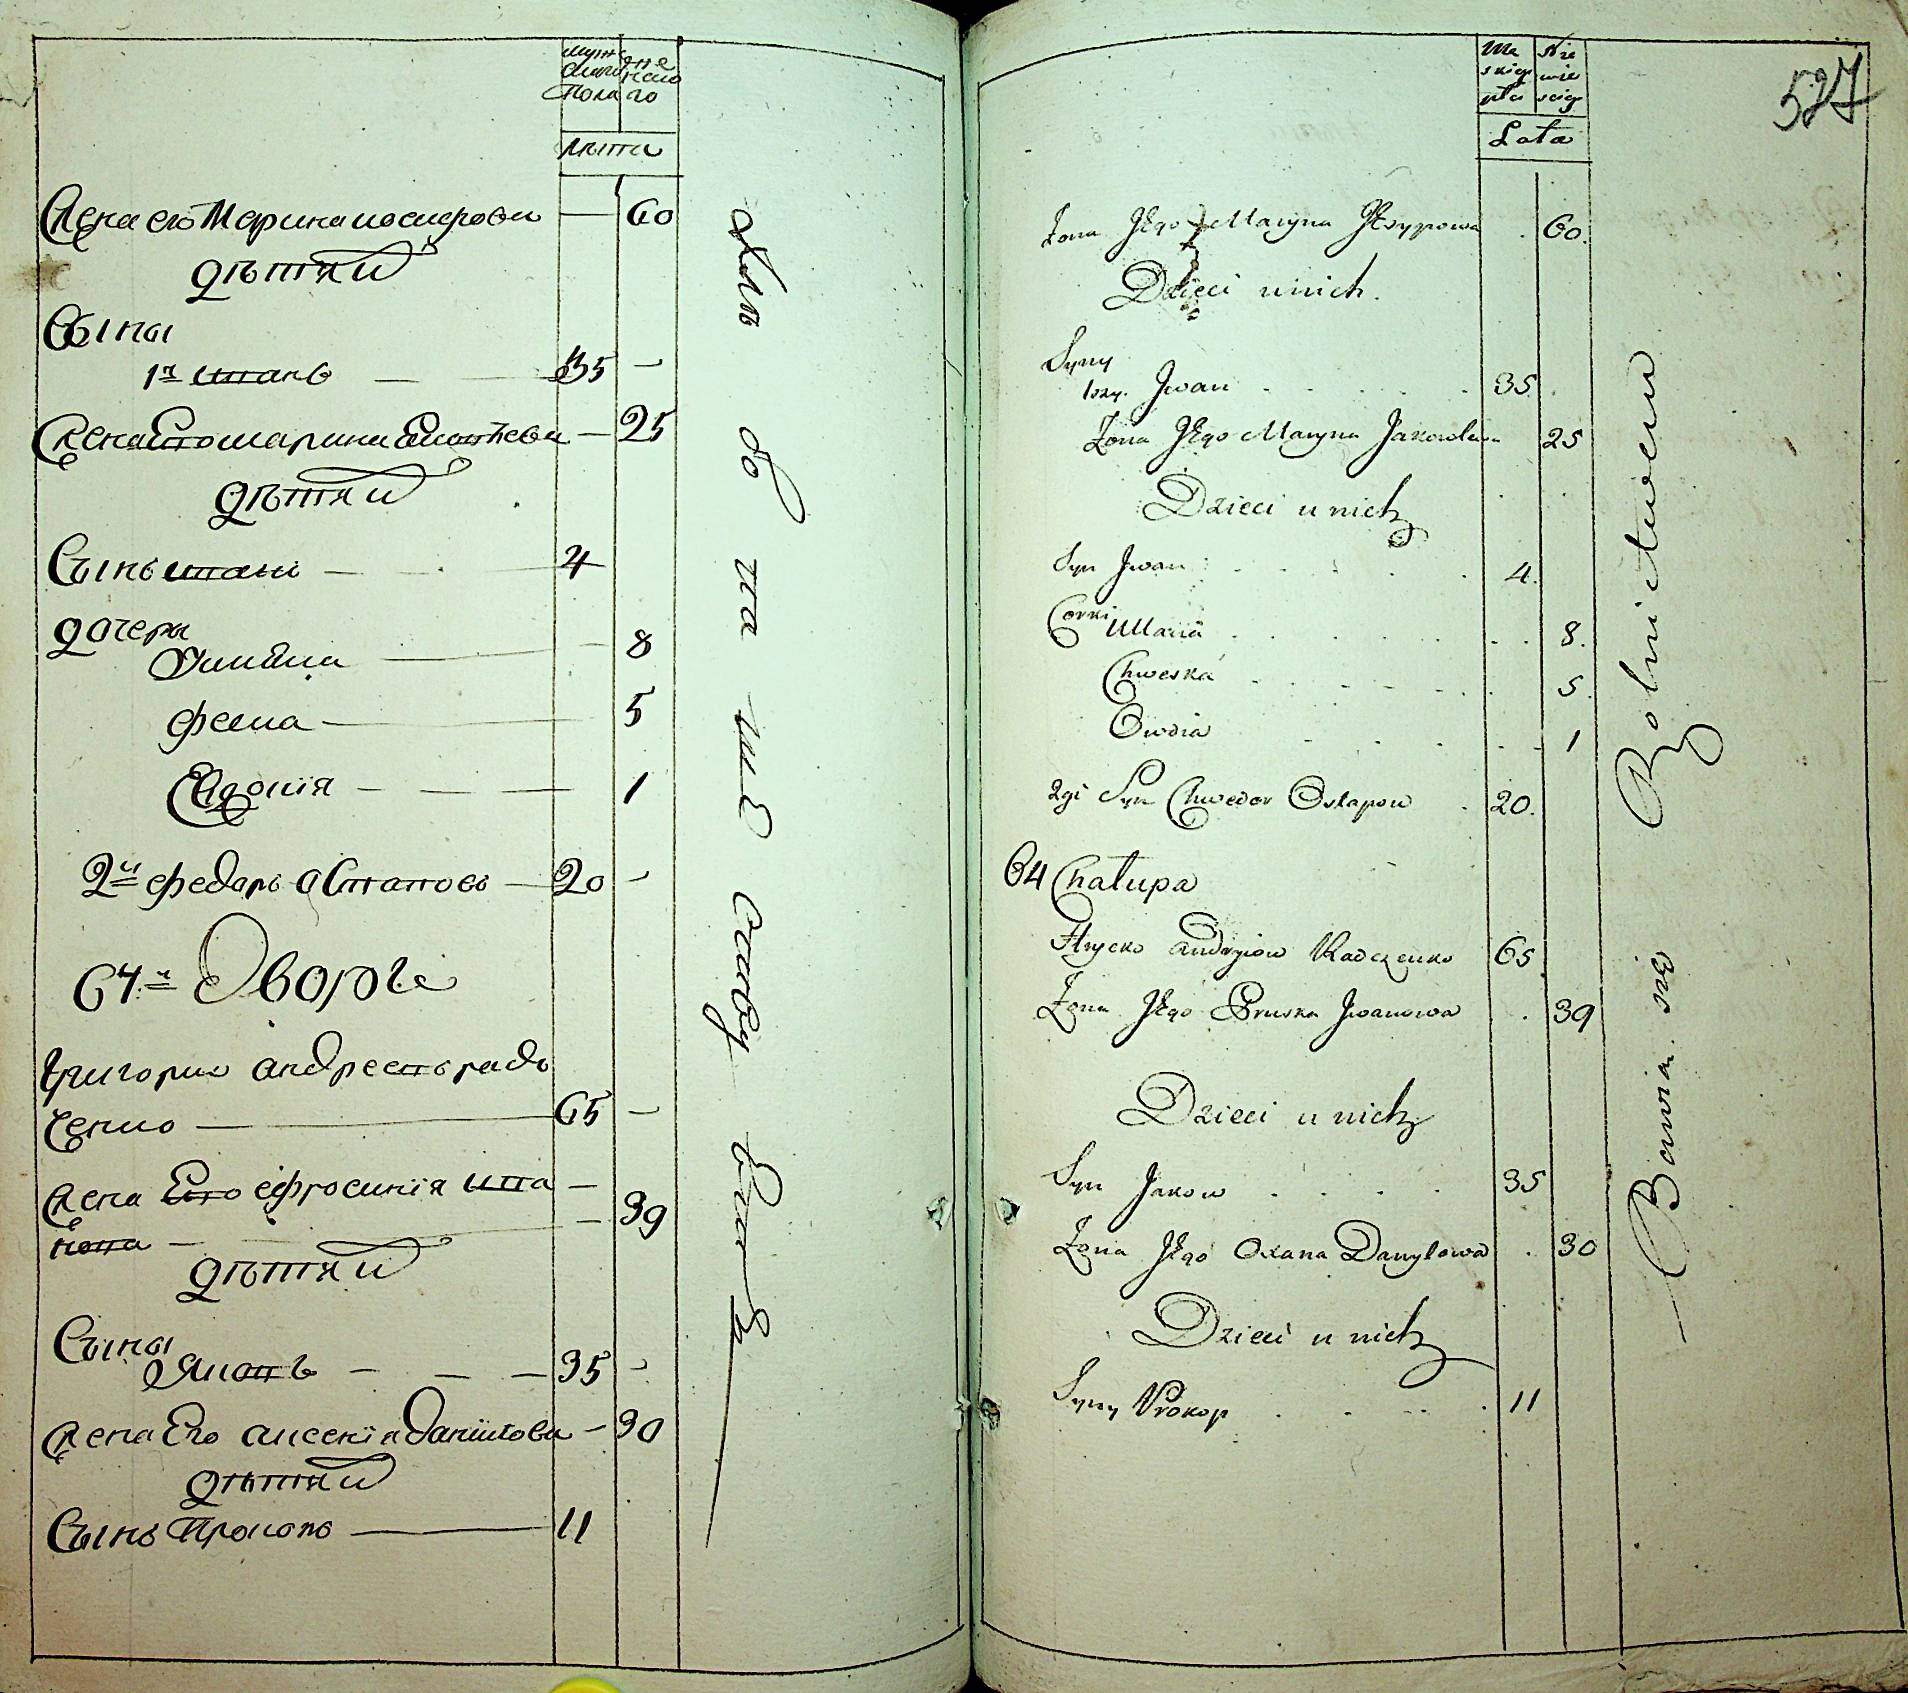 мужескаго пола
женскаго
лѣта
Жена его Марина иосипова — 60
дѣти их
Сыны
1й иванъ — 35 —
Жена Его марина Яковлева — 25
дѣти их
Сынъ иванъ — 4
дочеры
8
5
Евдокія — 1
2й федоръ Остаповъ — 20 —
64й Дворъ
Григорий андреевъ рад
ченко — 65 —
жена Его ефросинія ива —
нова — 39
дѣти их
Сыны
Яковъ — 35 —
жена Его аксенія данилова — 30
дѣти их
Сынъ Прокопъ — 11
Męskiey płci
Żeńskiey
Lata
527
Żona Jego Maryna Josypowa . 60.
Dzieci u nich.
Syny
1szy. Jwan 35
Żona Jego Maryna Jakowlewa 25
Dzieci u nich
Syn Jwan 4.
Corki Maria 8.
Chweska 5.
Owdia 1
2gi Syn Chwedor Ostapow . 20.
64 Chałupa
Hrycko Andryiow Radczenko 65
Żona Jego Pruska Jwanowa . 39
Dzieci u nich
Syn Jakow 35
Żona Jego Oxana Danyłowa . 30
Dzieci u nich
Syny Prokop 11
Bawia się Rolnictwem